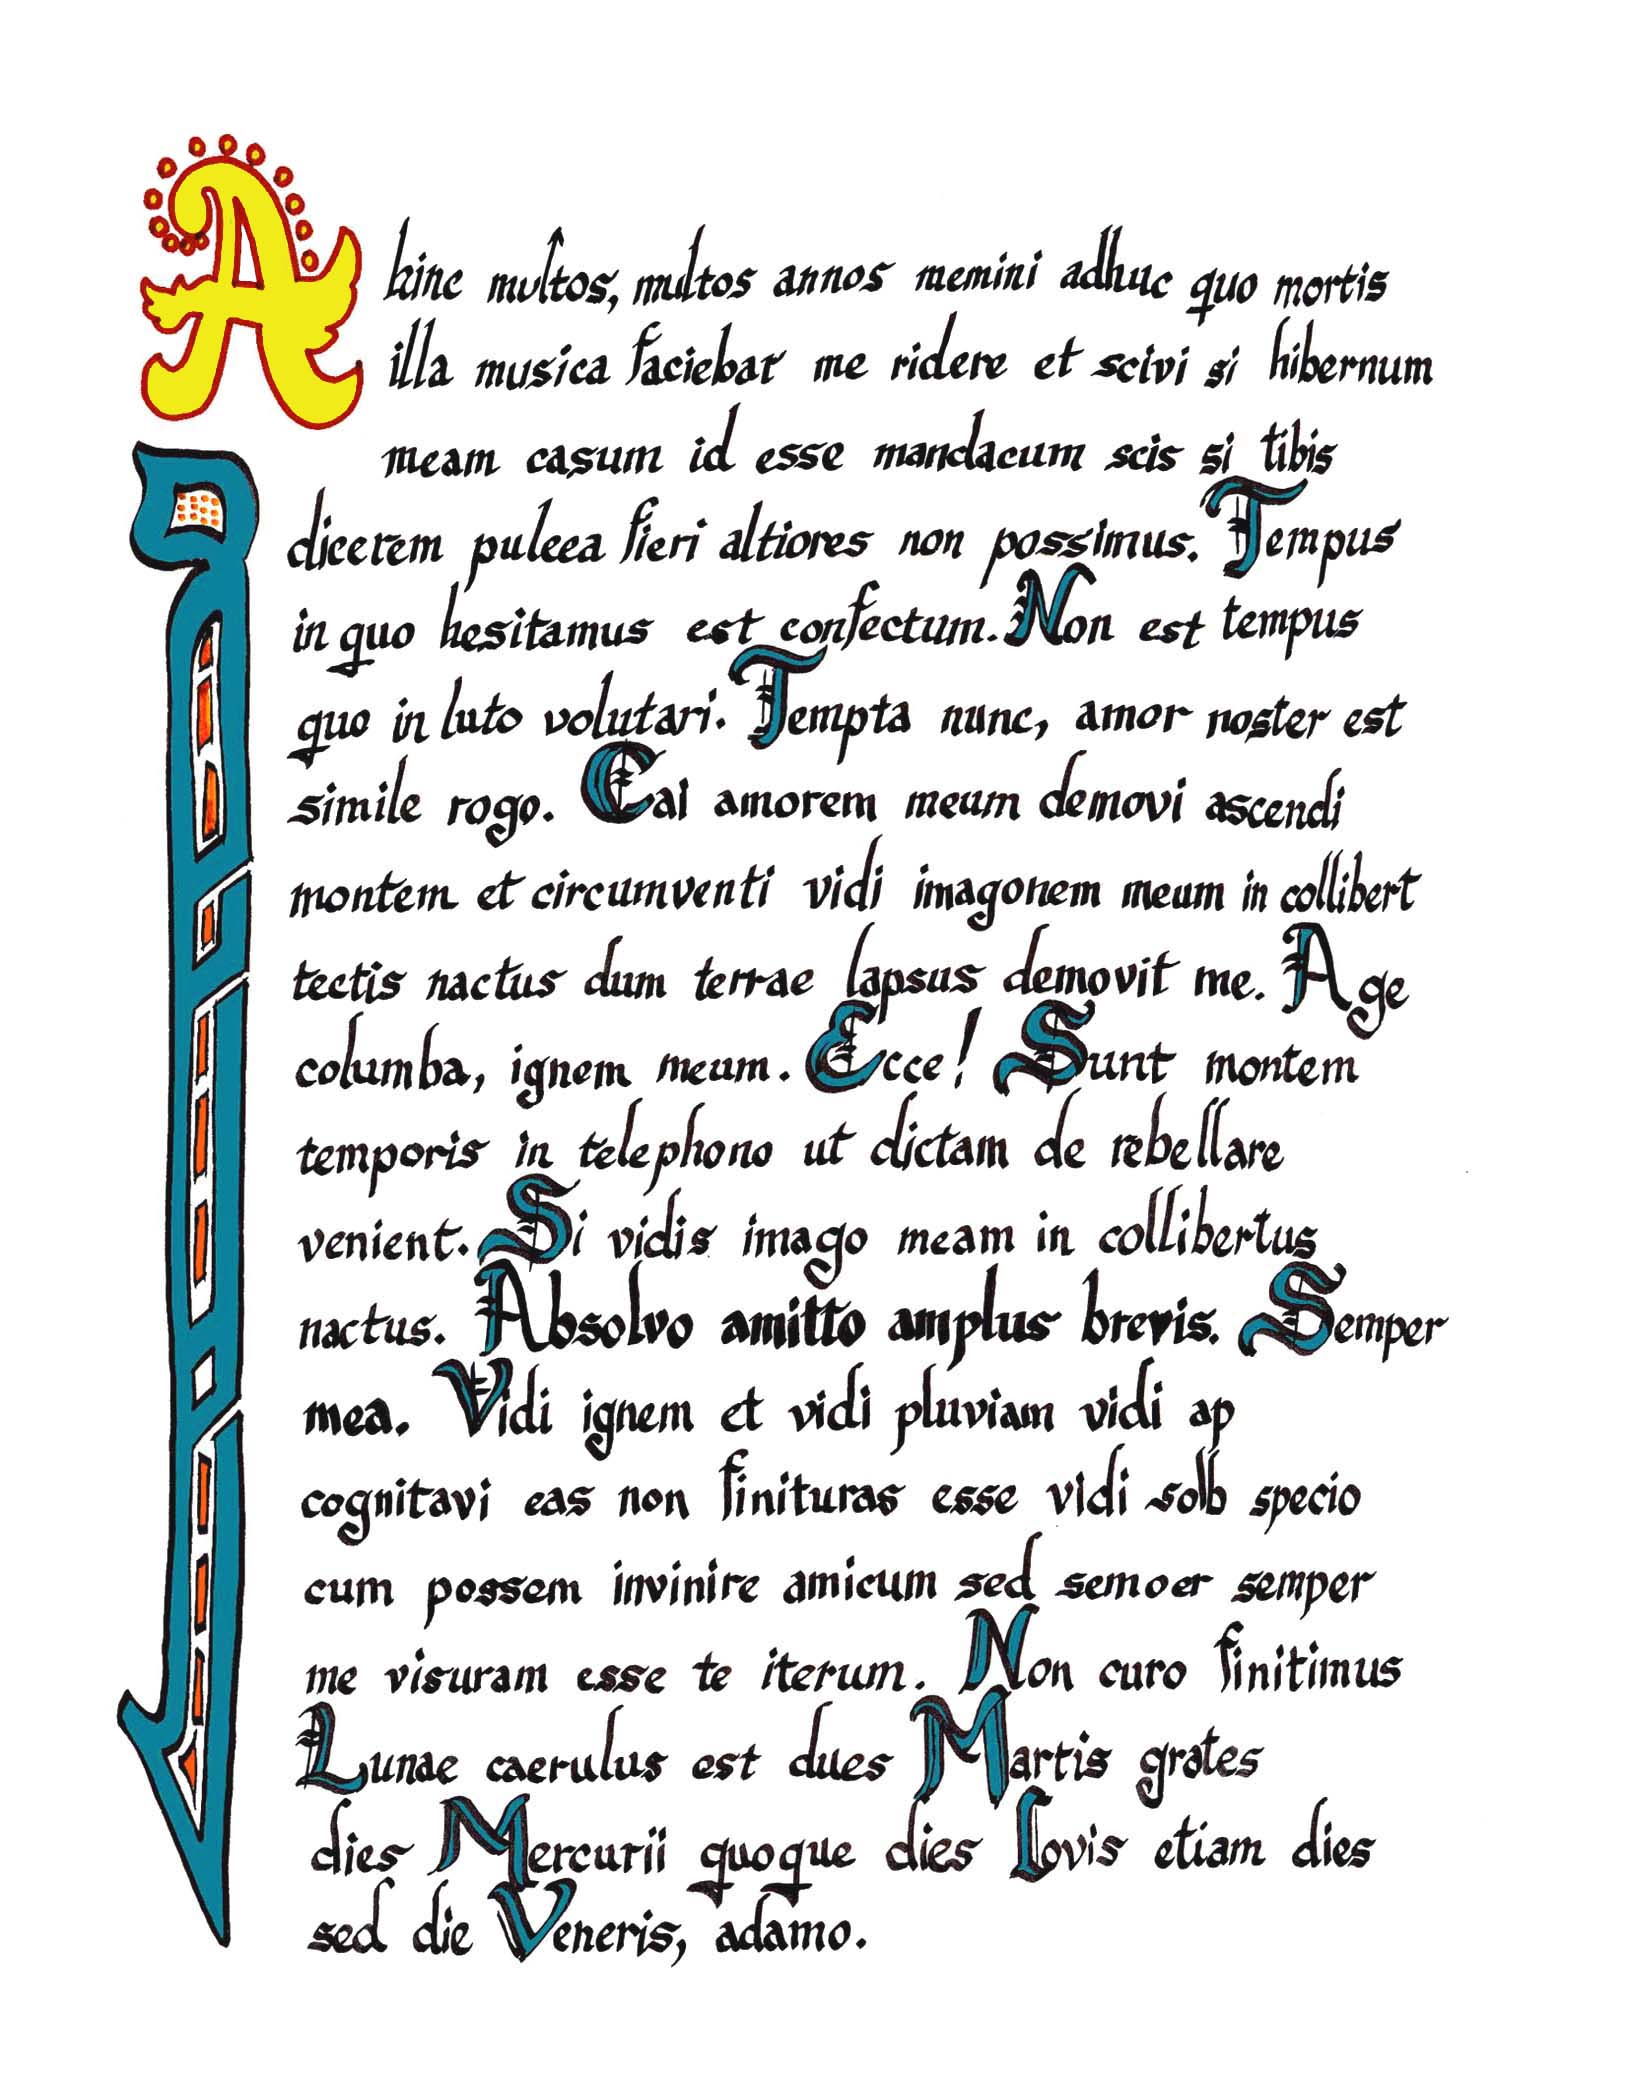 Ahinc multos, multos annos memini adhuc quo mortis
illa musica faciebat me ridere et scivi si hibernum
meam casum id esse mandacum scis si tibis
dicerem pulcea fieri altiores non possimus. Tempus
in quo hesitamus est confectum. Non est tempus
quo in luto volutari. Tempta nunc, amor noster est
simile rogo. Cal amorem meum demovi ascendi
montem et circumventi vidi imagonem meum in collibert
tectis nactus dum terrae lapsus demovit me. Age
columba, ignem meum. Ecce! Sunt montem
temporis in telephono ut dictam de rebellare
venient. Si vidis imago meam in collibertus
nactus. Absolvo amitto amplus brevis. Semper
mea. Vidi ignem et vidi pluviam vidi ap
cognitavi eas non finituras esse vidi solb specio
cum possem invinire amicum sed semoer semper
me visuram esse te iterum. Non curo finitimus
Lunae caerulus est dues Martis grates
dies Mercurii quoque dies Iovis etiam dies
sed die Veneris, adamo.